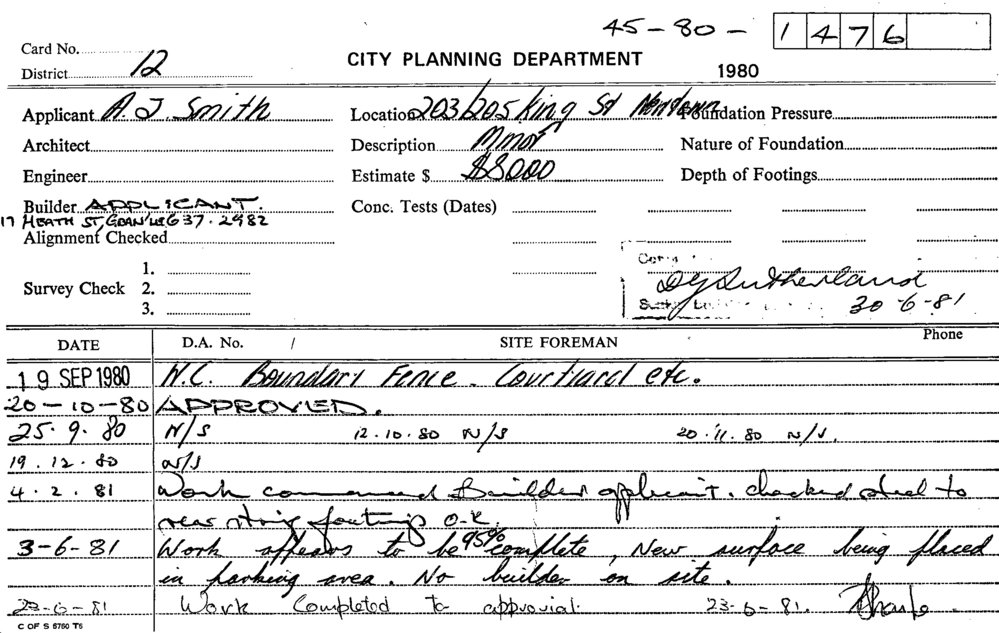 45-80- 1476
Card No.
District 12
CITY PLANNING DEPARTMENT
1980
Applicant A. J. Smith
Location 203/205 King St Newtown
Foundation Pressure
Architect
Description Minor
Nature of Foundation
Engineer
Estimate $ $8000
Depth of Footings
Builder APPLICANT.
17 HEATH ST, 637-2982
Conc. Tests (Dates)
Alignment Checked
Survey Check 1.
2.
3.
DG Sutherland
30-6-81
DATE D.A. No. / SITE FOREMAN Phone
19 SEP 1980 W.C. Boundary Fence. Courtyard etc.
20-10-80 APPROVED.
25.9.80 N/S 12.10.80 N/S 20.11.80 N/S.
19.12.80 N/S
4.2.81 Work commenced Builder applicant. checked steel to
rear strip footings O.K.
3-6-81 Work appears to be 95% complete, New surface being placed
in parking area. No builder on site.
23-6-81 Work Completed to approval. 23-6-81.
C OF S 5750 T5